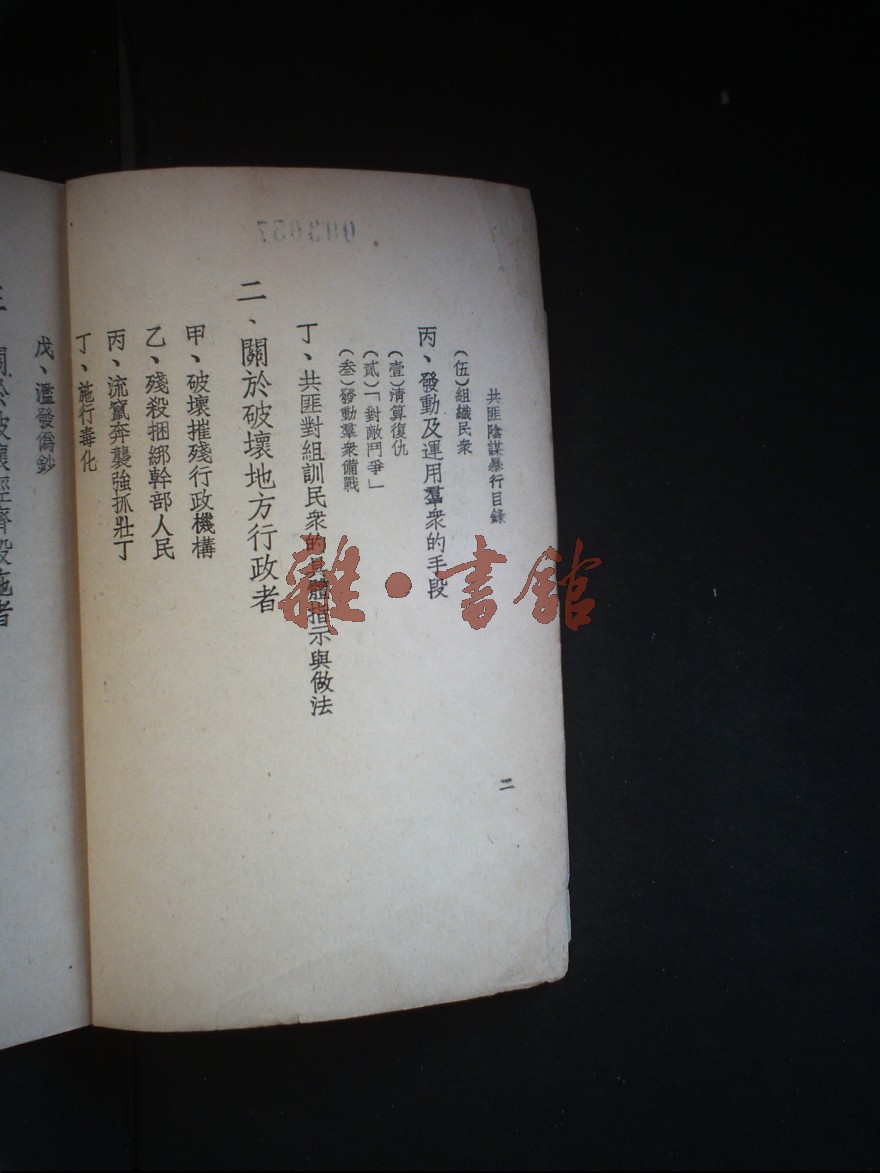 共匪陰謀暴行目錄
(伍)組織民衆
丙、發動及運用羣衆的手段
(壹)清算復仇
(貳)「對敵鬥爭」
(叁)發動羣衆備戰
丁、共匪對組訓民衆的具體指示與做法
二、關於破壞地方行政者
甲、破壞摧殘行政機構
乙、殘殺捆綁幹部人民
丙、流竄奔襲強抓壯丁
丁、施行毒化
戊、濫發僞鈔
三、關於破壞經濟設施者
二
003657
雜·書館